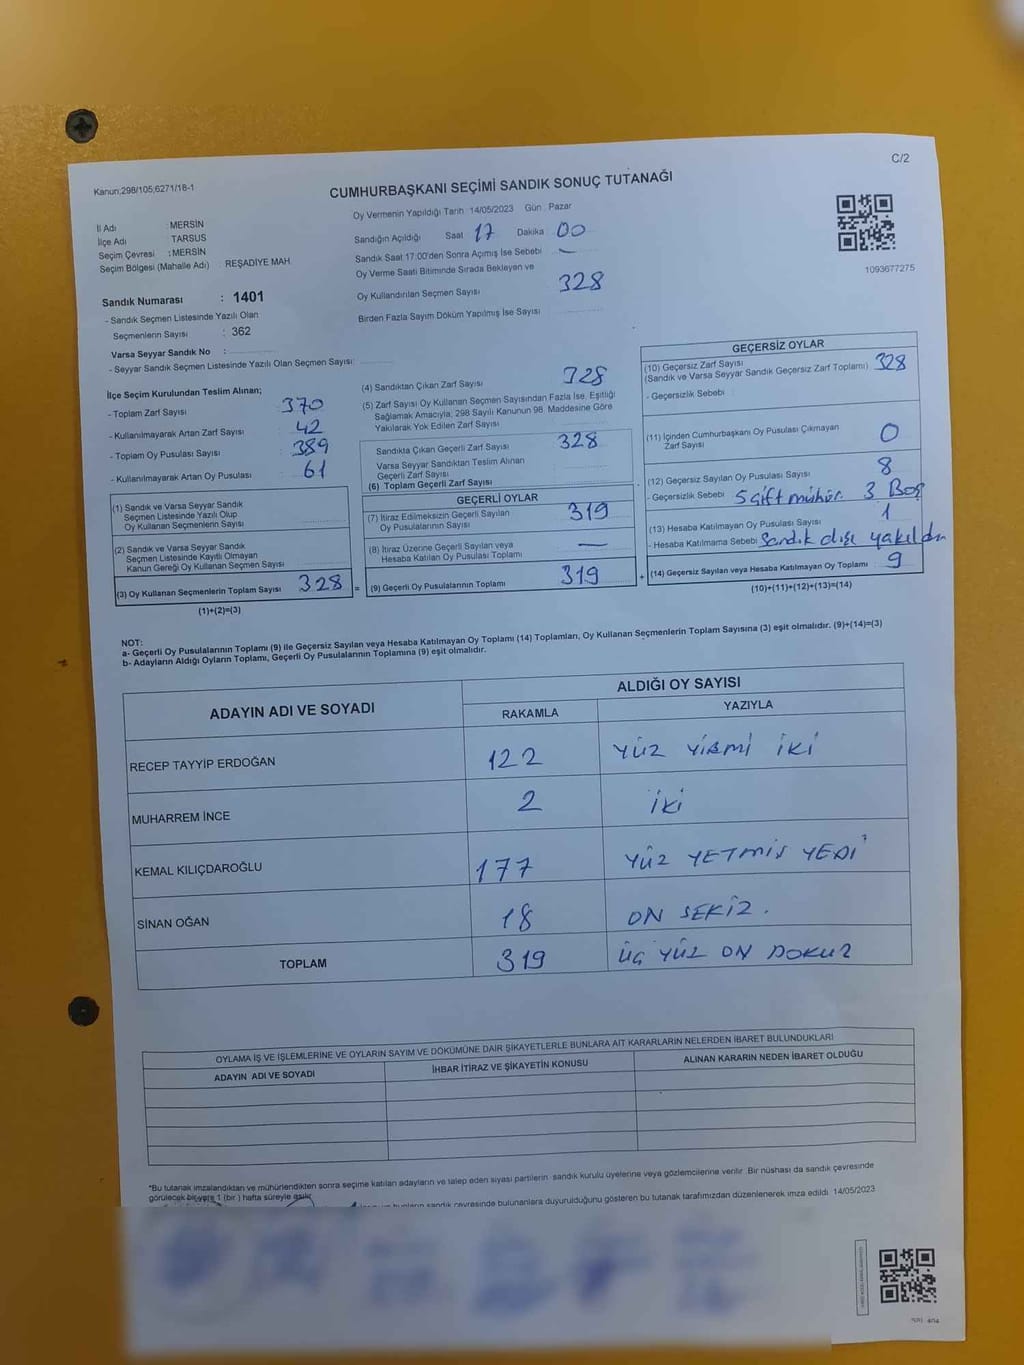 C/2
Kanun;298/105;6271/18-1
CUMHURBAŞKANI SEÇİMİ SANDIK SONUÇ TUTANAĞI
İl Adı : MERSİN
İlçe Adı TARSUS
Seçim Çevresi : MERSİN
Seçim Bölgesi (Mahalle Adı) REŞADİYE MAH.
Sandık Numarası : 1401
- Sandık Seçmen Listesinde Yazılı Olan
Seçmenlerin Sayısı : 362
Varsa Seyyar Sandık No :
- Seyyar Sandık Seçmen Listesinde Yazılı Olan Seçmen Sayısı:
Oy Vermenin Yapıldığı Tarih 14/05/2023 Gün : Pazar
Sandığın Açıldığı Saat 17 Dakika 00
Sandık Saat 17:00'den Sonra Açımış İse Sebebi —
Oy Verme Saati Bitiminde Sırada Bekleyen ve
Oy Kullandırılan Seçmen Sayısı 328
Birden Fazla Sayım Döküm Yapılmış İse Sayısı
1093677275
İlçe Seçim Kurulundan Teslim Alınan;
- Toplam Zarf Sayısı 370
- Kullanılmayarak Artan Zarf Sayısı 42
- Toplam Oy Pusulası Sayısı 389
- Kullanılmayarak Artan Oy Pusulası 61
(1) Sandık ve Varsa Seyyar Sandık
Seçmen Listesinde Yazılı Olup
Oy Kullanan Seçmenlerin Sayısı
(2) Sandık ve Varsa Seyyar Sandık
Seçmen Listesinde Kayıtlı Olmayan
Kanun Gereği Oy Kullanan Seçmen Sayısı
(3) Oy Kullanan Seçmenlerin Toplam Sayısı 328 =
(1)+(2)=(3)
(4) Sandıktan Çıkan Zarf Sayısı 328
(5) Zarf Sayısı Oy Kullanan Seçmen Sayısından Fazla İse, Eşitliği
Sağlamak Amacıyla, 298 Sayılı Kanunun 98. Maddesine Göre
Yakılarak Yok Edilen Zarf Sayısı
Sandıkta Çıkan Geçerli Zarf Sayısı 328
Varsa Seyyar Sandıktan Teslim Alınan
Geçerli Zarf Sayısı
(6) Toplam Geçerli Zarf Sayısı
GEÇERLİ OYLAR
(7) İtiraz Edilmeksizin Geçerli Sayılan
Oy Pusulalarının Sayısı 319
(8) İtiraz Üzerine Geçerli Sayılan veya
Hesaba Katılan Oy Pusulası Toplamı —
(9) Geçerli Oy Pusulalarının Toplamı 319 +
GEÇERSİZ OYLAR
(10) Geçersiz Zarf Sayısı
(Sandık ve Varsa Seyyar Sandık Geçersiz Zarf Toplamı) 328
- Geçersizlik Sebebi
(11) İçinden Cumhurbaşkanı Oy Pusulası Çıkmayan
Zarf Sayısı 0
(12) Geçersiz Sayılan Oy Pusulası Sayısı 8
- Geçersizlik Sebebi 5 çift mühür. 3 Boş
(13) Hesaba Katılmayan Oy Pusulası Sayısı 1
- Hesaba Katılmama Sebebi Sandık dışı yakıldı
(14) Geçersiz Sayılan veya Hesaba Katılmayan Oy Toplamı 9
(10)+(11)+(12)+(13)=(14)
NOT:
a- Geçerli Oy Pusulalarının Toplamı (9) ile Geçersiz Sayılan veya Hesaba Katılmayan Oy Toplamı (14) Toplamları, Oy Kullanan Seçmenlerin Toplam Sayısına (3) eşit olmalıdır. (9)+(14)=(3)
b- Adayların Aldığı Oyların Toplamı, Geçerli Oy Pusulalarının Toplamına (9) eşit olmalıdır.
ADAYIN ADI VE SOYADI
ALDIĞI OY SAYISI
RAKAMLA YAZIYLA
RECEP TAYYİP ERDOĞAN 122 YÜZ YİRMİ İKİ
MUHARREM İNCE 2 İKİ
KEMAL KILIÇDAROĞLU 177 YÜZ YETMİŞ YEDİ
SİNAN OĞAN 18 ON SEKİZ.
TOPLAM 319 ÜÇ YÜZ ON DOKUZ
OYLAMA İŞ VE İŞLEMLERİNE VE OYLARIN SAYIM VE DÖKÜMÜNE DAİR ŞİKAYETLERLE BUNLARA AİT KARARLARIN NELERDEN İBARET BULUNDUKLARI
ADAYIN ADI VE SOYADI İHBAR İTİRAZ VE ŞİKAYETİN KONUSU ALINAN KARARIN NEDEN İBARET OLDUĞU
*Bu tutanak imzalandıktan ve mühürlendikten sonra seçime katılan adayların ve talep eden siyasi partilerin sandık kurulu üyelerine veya gözlemcilerine verilir. Bir nüshası da sandık çevresinde
görülecek bir yere 1 (bir ) hafta süreyle asılır.
sandık çevresinde bulunanlara duyurulduğunu gösteren bu tutanak tarafımızdan düzenlenerek imza edildi. 14/05/2023